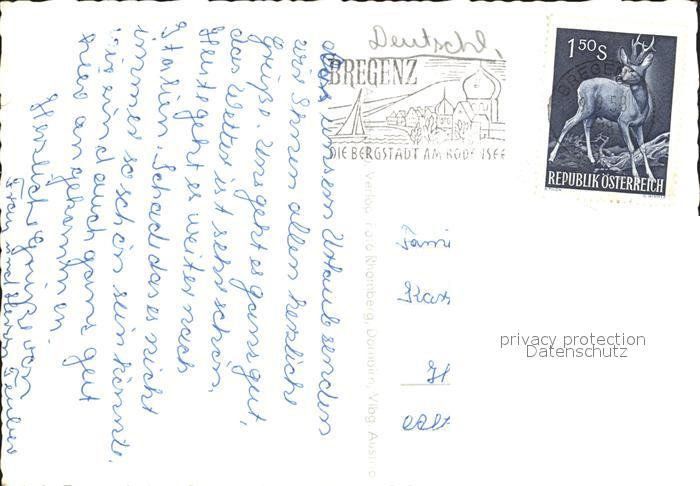 Aus unserm Urlaub senden
wir Ihnen allen herzliche
Grüße. Uns geht es ganz gut,
das Wetter ist sehr schön.
Heute geht es weiter nach
Italien. Schade das es nicht
immer so schön sein könnte.
wir sind auch ganz gut
angekommen.
Herzliche Grüße von
Frau und Herrn
Deutschl.
BREGENZ
DIE BERGSTADT AM BODENSEE
1 50 S
BREGENZ
REPUBLIK ÖSTERREICH
Verlag Foto Rhomberg, Dornbirn, Vlbg. Austria
Fami
privacy protection
Datenschutz